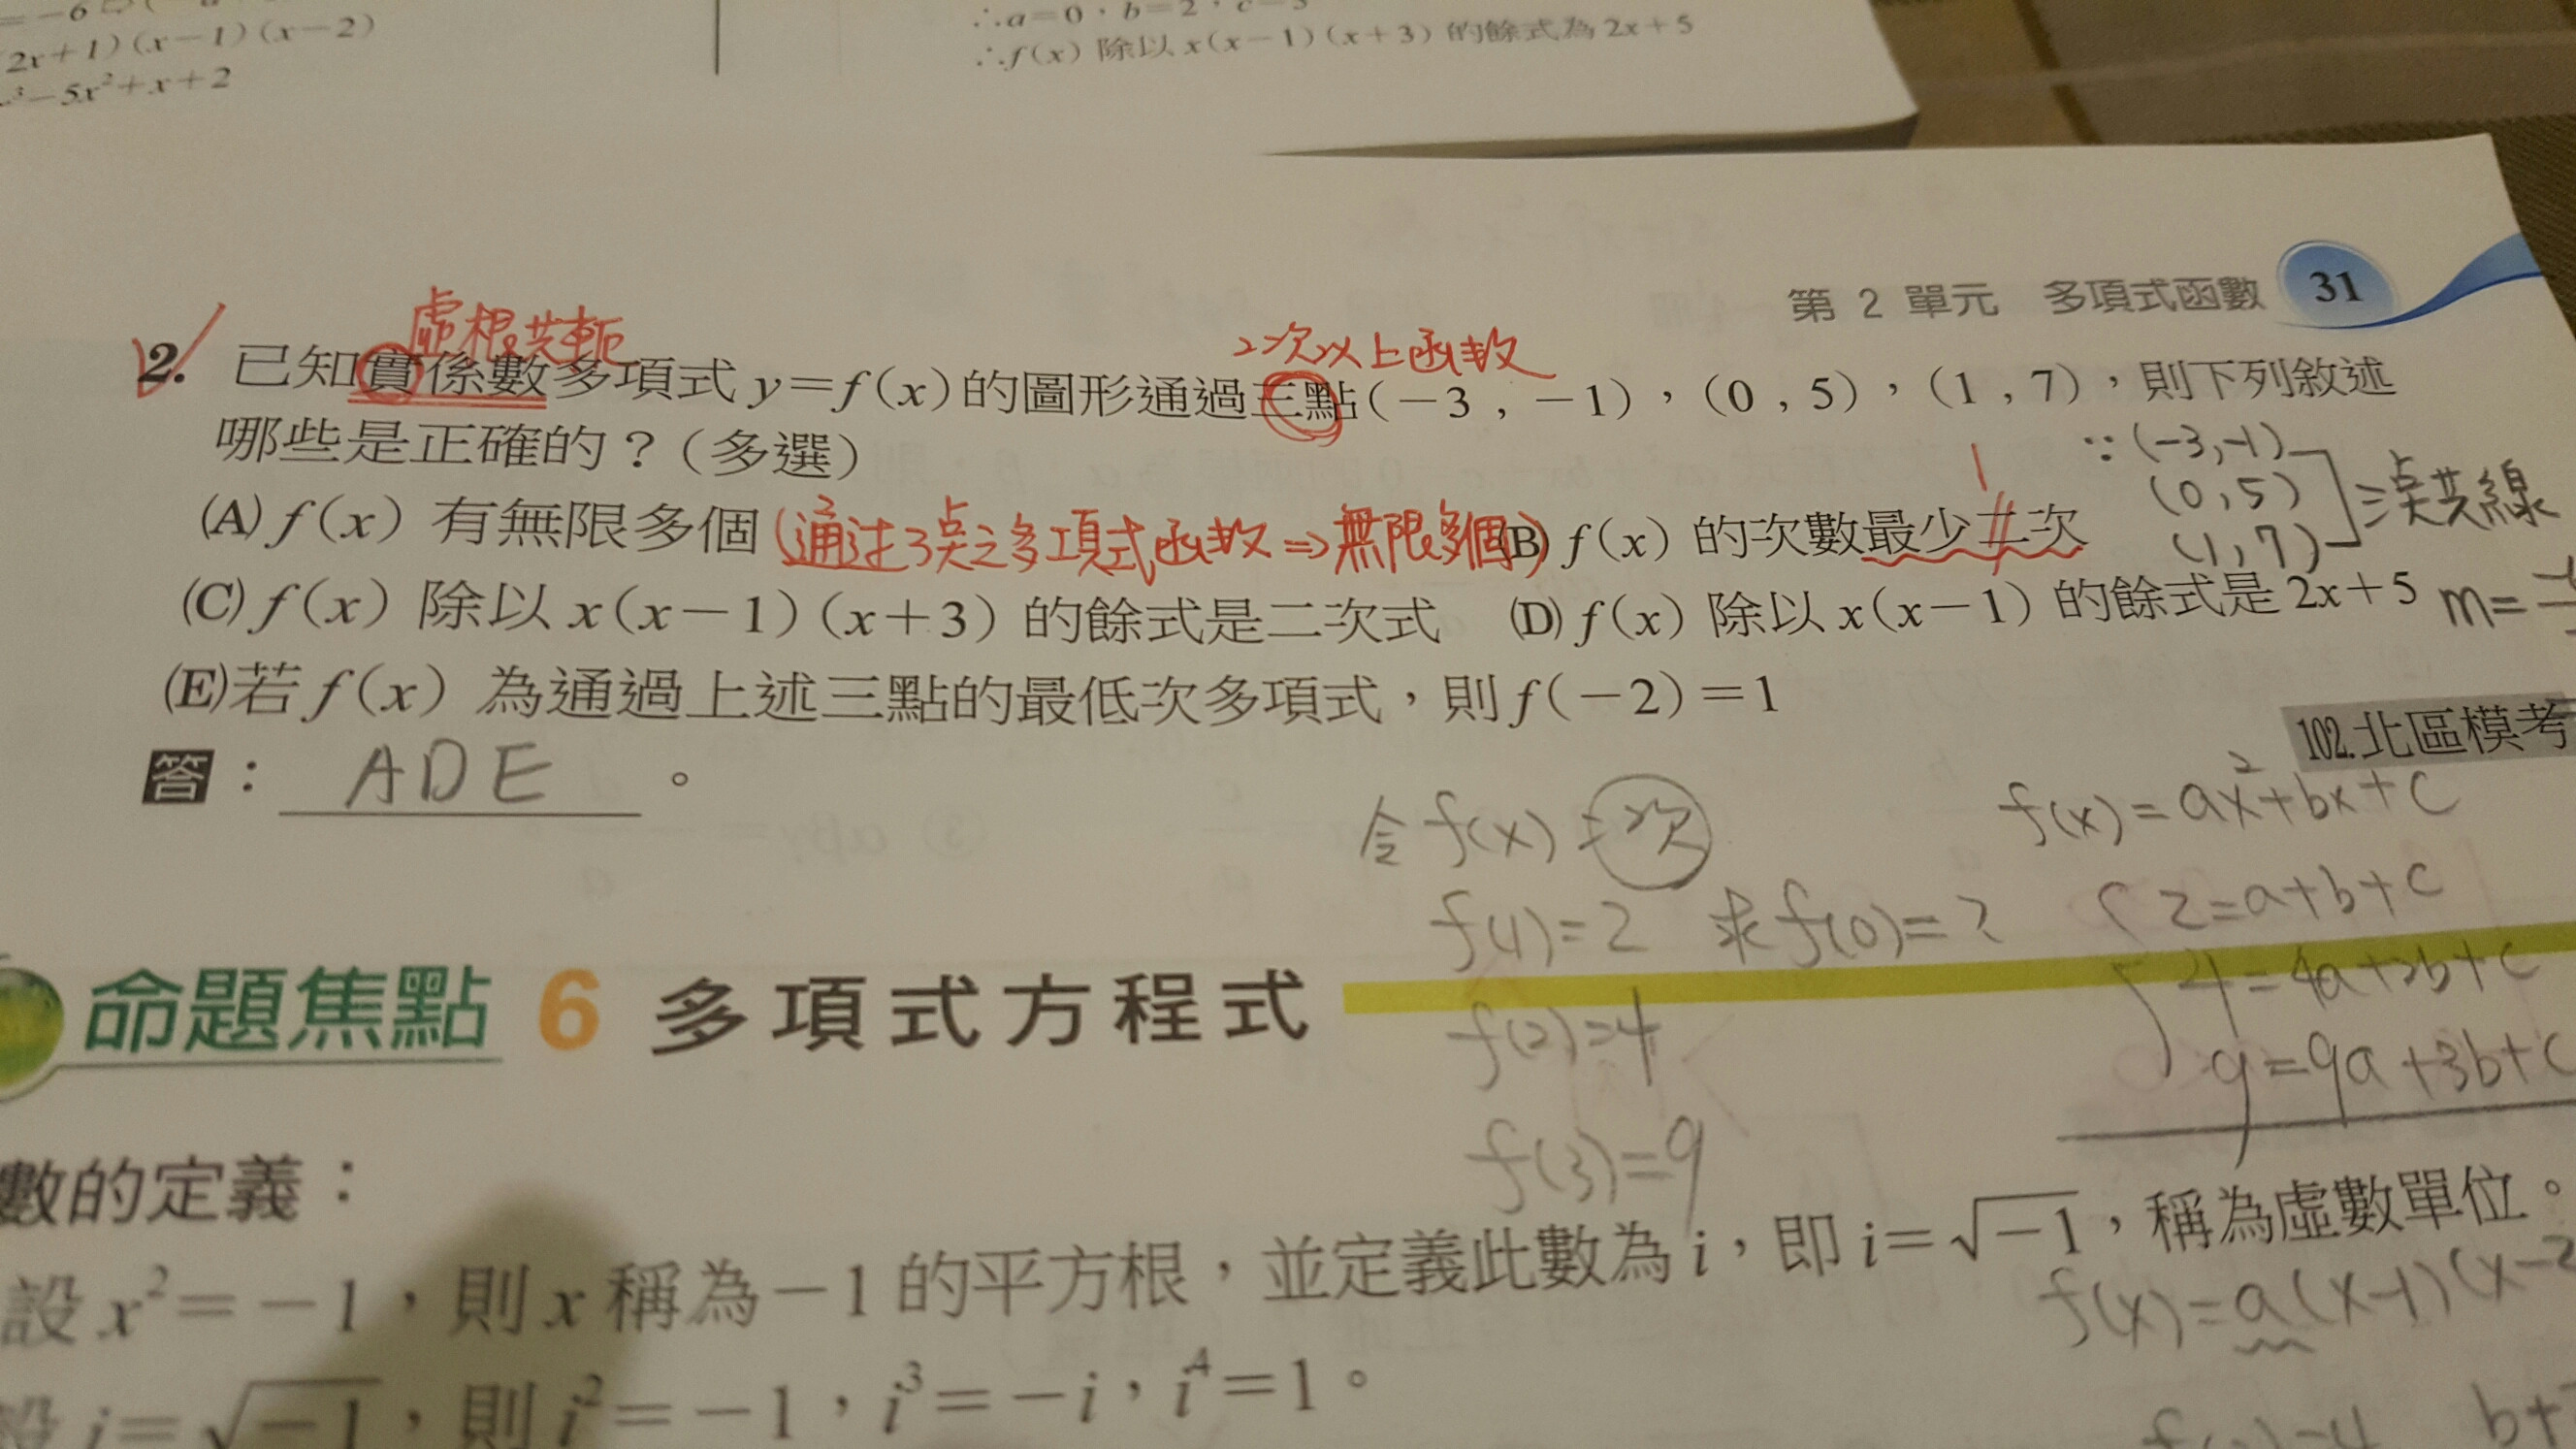 2x+1)(x-1)(x-2)
³-5x²+x+2
∴a=0，b=2，c=
∴f(x) 除以 x(x-1)(x+3) 的餘式為 2x+5
第 2 單元 多項式函數 31
虛根共軛
二次以上函數
2. 已知實係數多項式 y=f(x)的圖形通過三點(-3，-1)，(0，5)，(1，7)，則下列敘述
哪些是正確的？(多選)
∵(-3,-1)
(0,5)
(1,7)
三点共線
(A) f(x) 有無限多個 (通过3点之多項式函数⇒無限多個) (B) f(x) 的次數最少二次
1
(C) f(x) 除以 x(x-1)(x+3) 的餘式是二次式 (D) f(x) 除以 x(x-1) 的餘式是 2x+5
m=
(E)若 f(x) 為通過上述三點的最低次多項式，則 f(-2)=1
102.北區模考
答：ADE。
令f(x)=二次
f(1)=2 求f(0)=?
f(2)=4
f(3)=9
f(x)=ax²+bx+c
2=a+b+c
4=4a+2b+c
9=9a+3b+c
命題焦點 6 多項式方程式
數的定義：
設 x²=-1，則 x 稱為-1 的平方根，並定義此數為 i，即 i=√-1，稱為虛數單位。
f(x)=a(x-1)(x-2
設 i=√-1，則 i²=-1，i³=-i，i⁴=1。